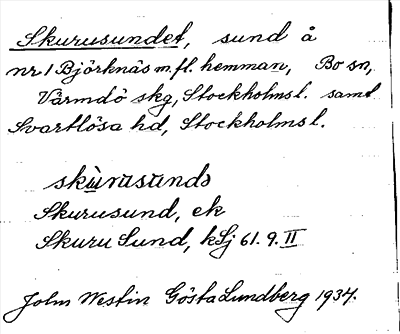 Skurusundet, sund å
nr 1 Björknäs m. fl. hemman, Bo sn,
Värmdö skg, Stockholms l. samt
Svartlösa hd, Stockholms l.
Skurusund, ek
Skuru Sund, kSj 61. 9. II
John Westin Gösta Lundberg 1934.